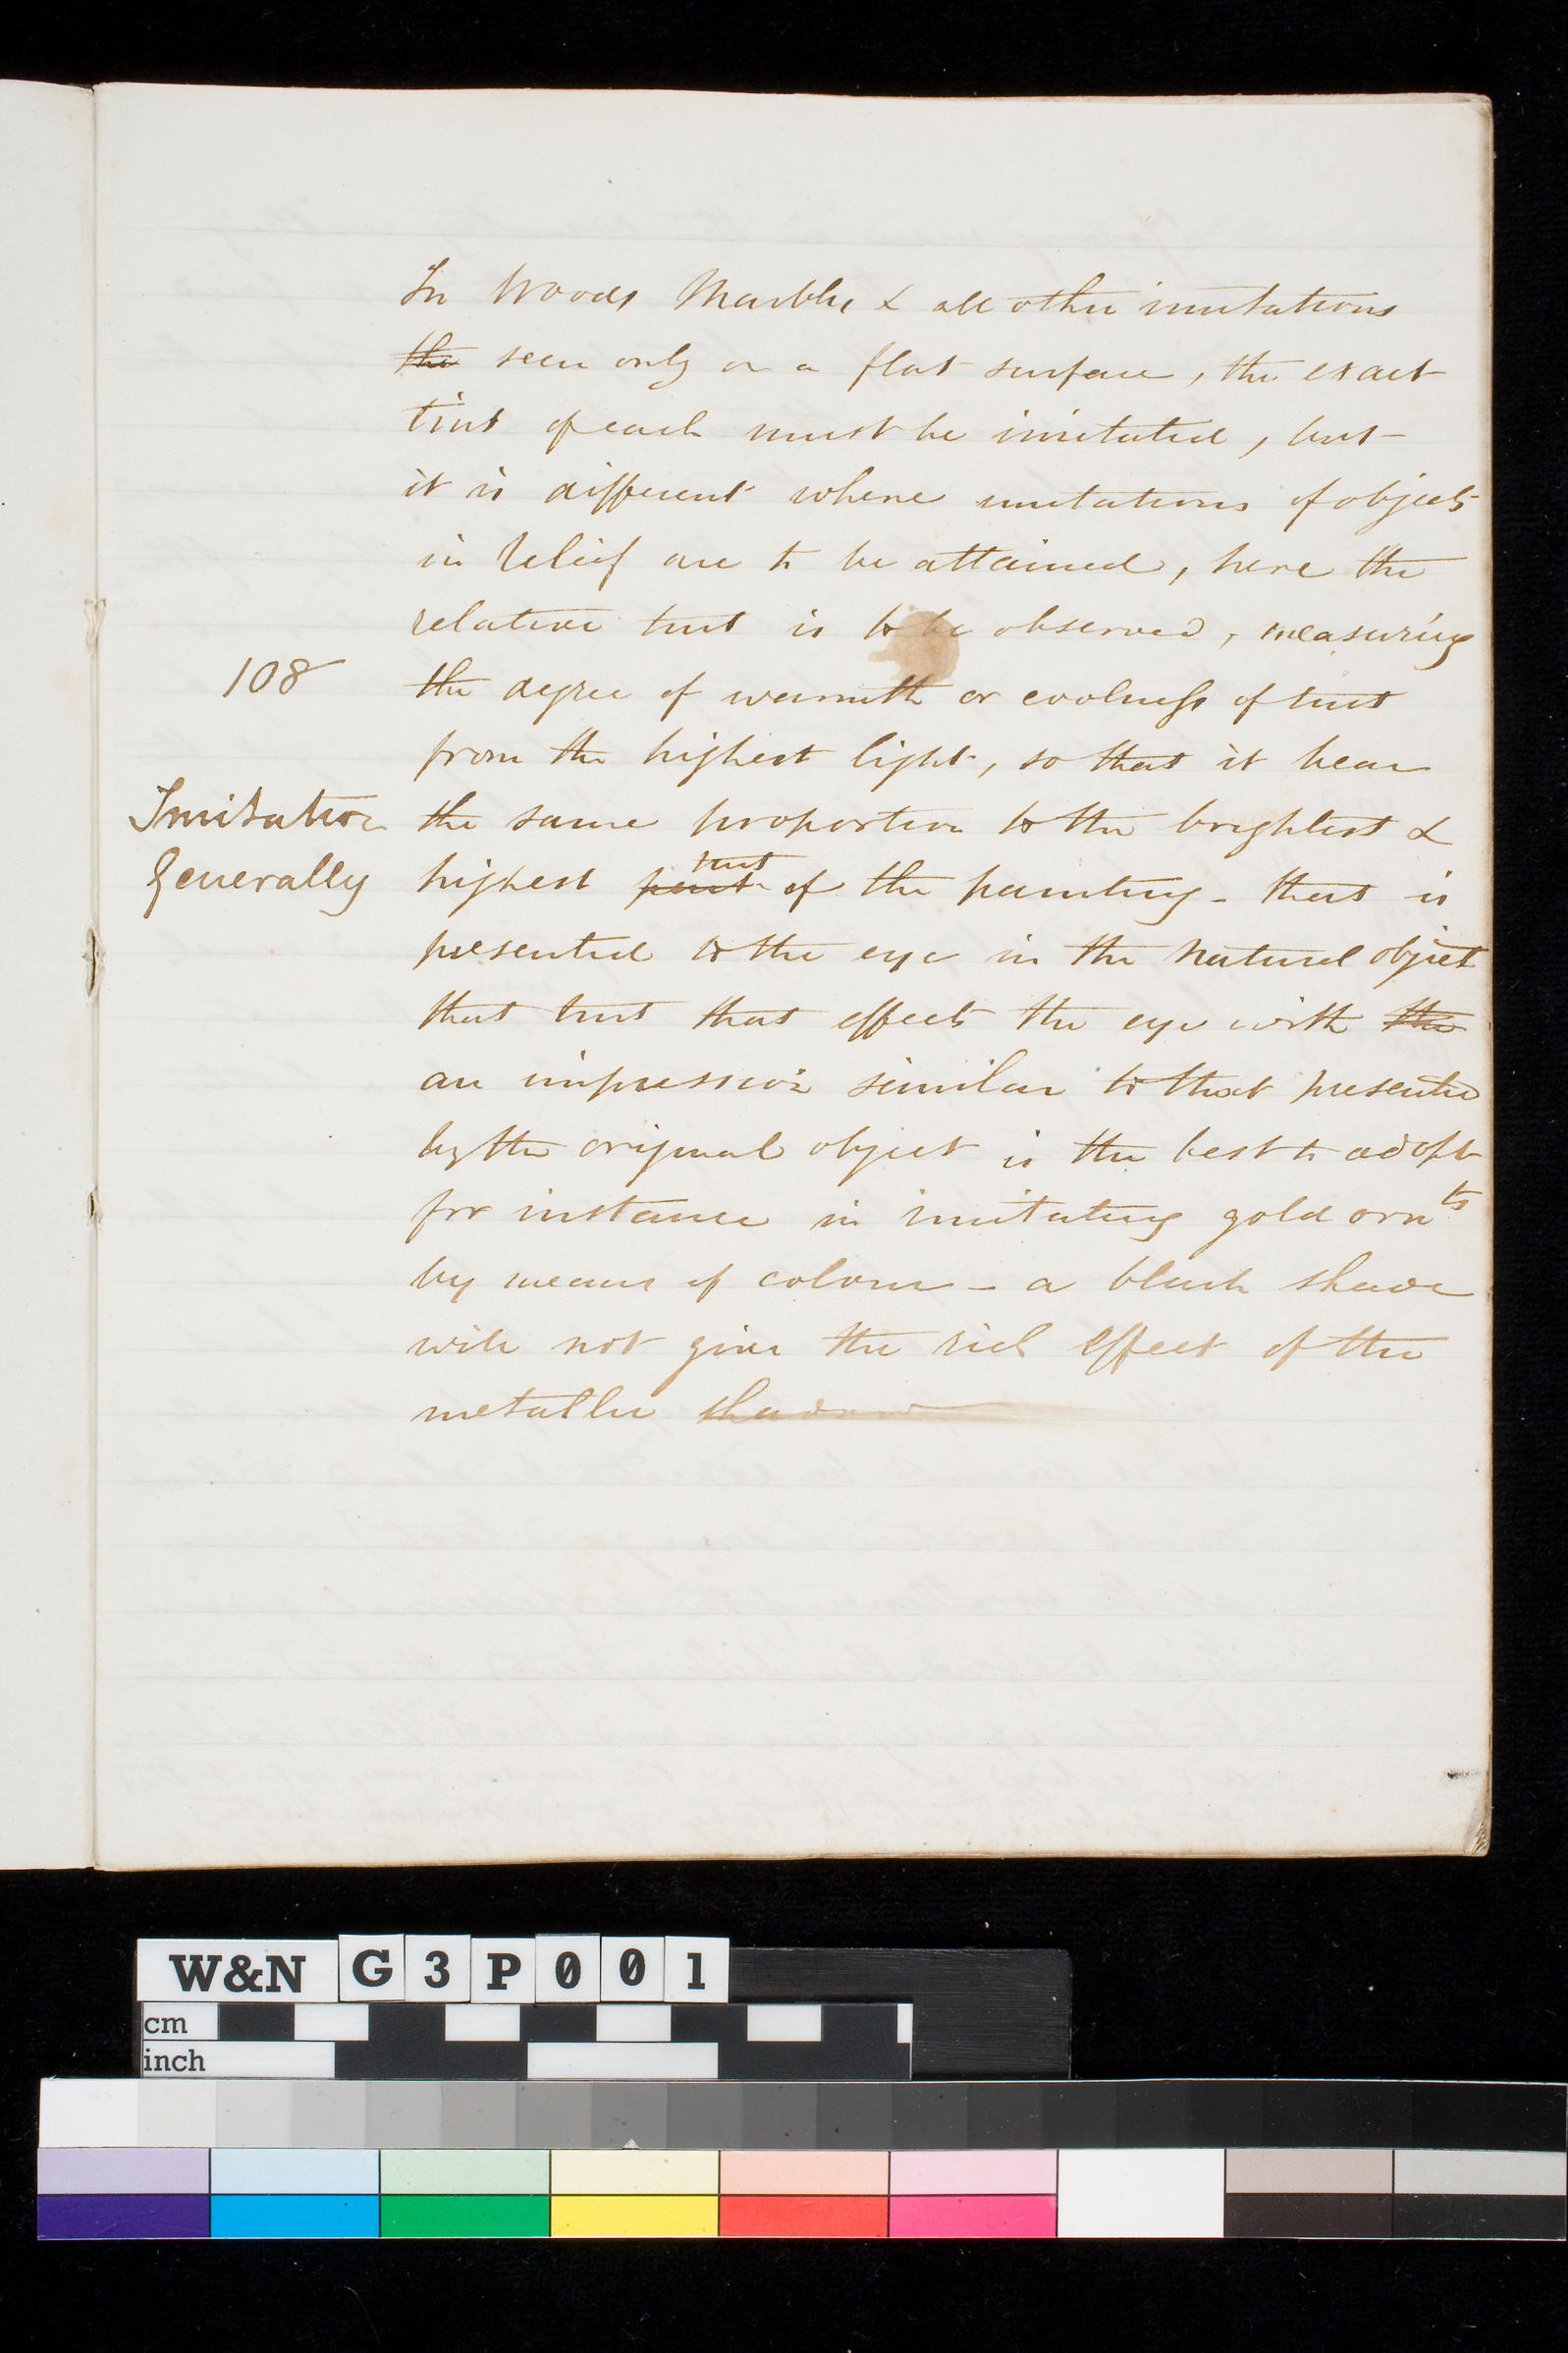 In Woods, Marbles & all other imitations
the seen only on a flat surface, the exact
tint of each must be imitated, but
it is different where imitations of objects
in relief are to be attained, here the
relative tint is to be observed, measuring
108
the degree of warmth or coolness of tint
from the highest light, so that it bear
Imitation
the same proportion to the brightest &
Generally
tint
highest part of the painting - that is
presented to the eye in the natural object
that tint that effects the eye with the
an impression similar to that presented
by the original object is the best to adopt
for instance in imitating gold orn.ts
by means of colour - a black shade
will not give the rich effect of the
metallic shadow
W&N G3P001
cm
inch